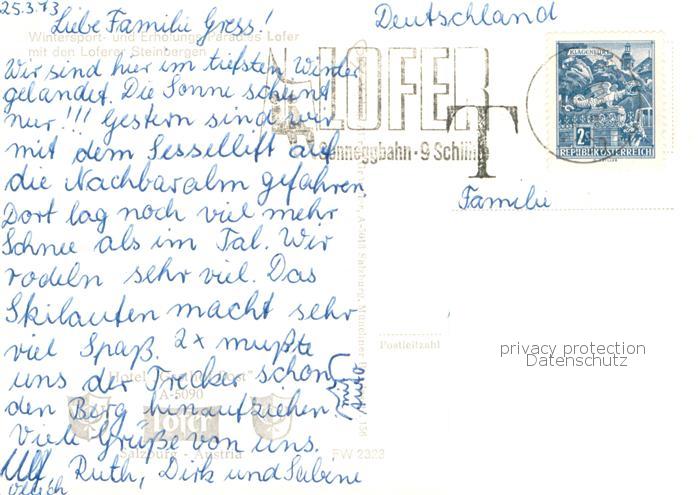 25.3.73
Liebe Familie Gress!
Deutschland
Wintersport- und Erholungs-Paradies Lofer
mit den Loferer Steinbergen
Wir sind hier im tiefsten Winter
gelandet. Die Sonne scheint
nur!!! Gestern sind wir
mit dem Sessellift auf
die Nachbaralm gefahren
Dort lag noch viel mehr
Schnee als im Tal. Wir
rodeln sehr viel. Das
Skilaufen macht sehr
viel Spaß. 2x mußte
uns der Trecker schon
den Berg hinaufziehen!
mit Auto
Viele Grüße von uns.
Ulf, Ruth, Dirk und Sabine
LOFER
9 Schilling
T
KLAGENFURT
2S
REPUBLIK ÖSTERREICH
Familie
Postleitzahl
privacy protection
Datenschutz
Hotel "Post"
A-5090
lofer
Salzburg - Austria
FW 2323